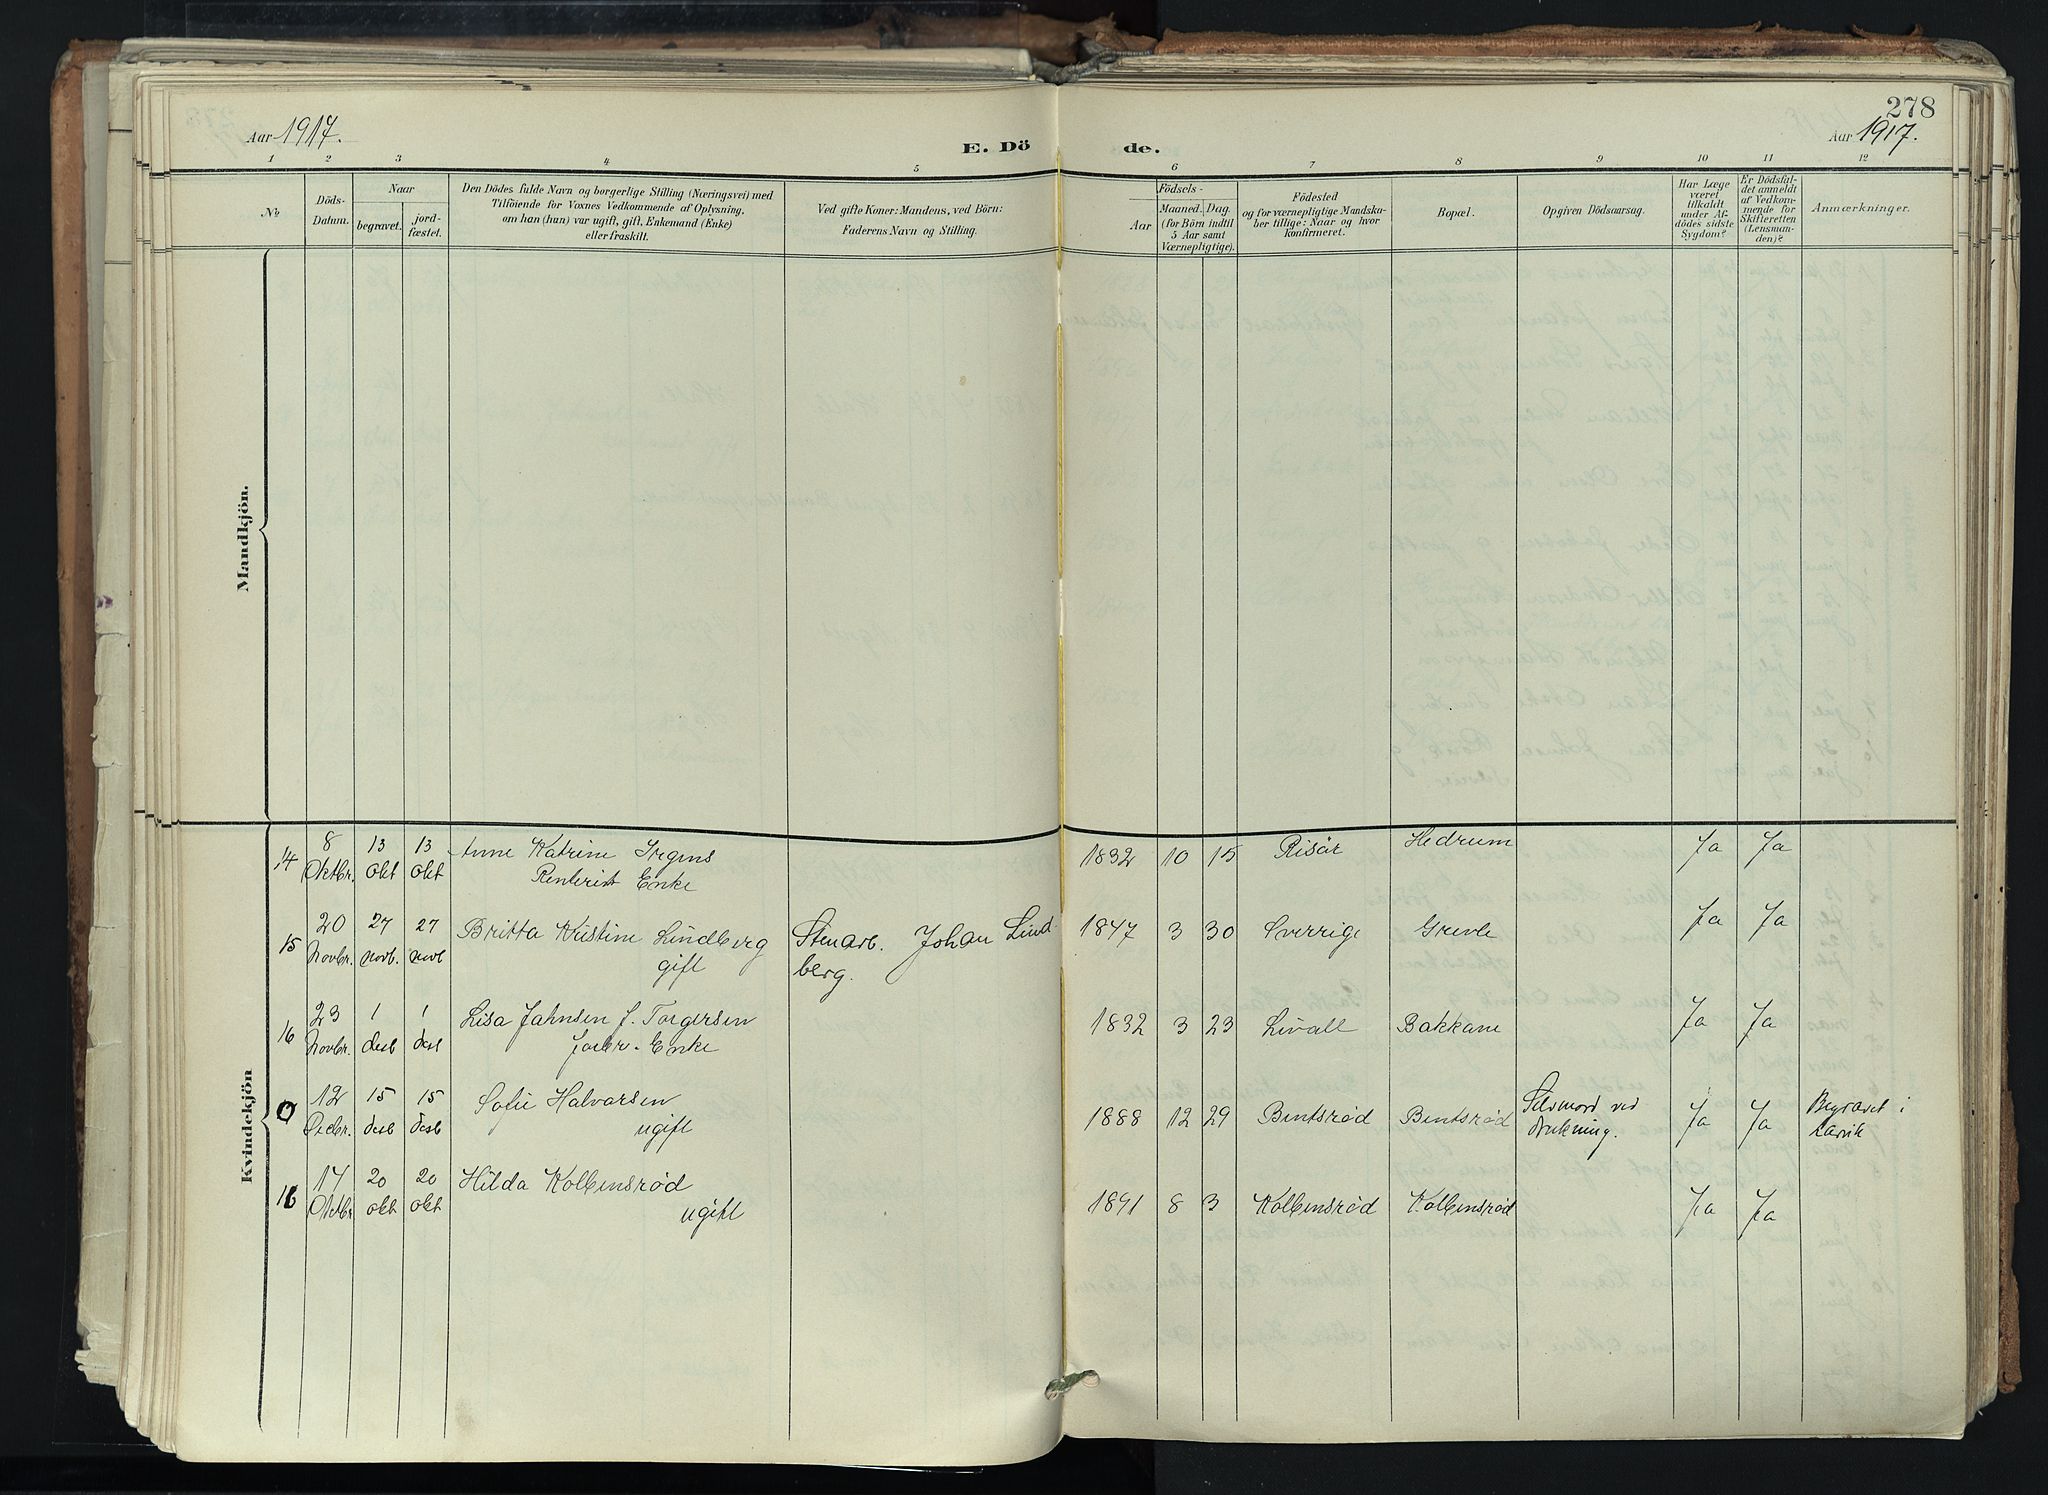 278
Aar 1917.
E. Dö
de.
Aar 1917.
1 2 3 4 5 6 7 8 9 10 11 12
№
Döds-
Datum.
Naar
begravet.
jord-
fæstet.
Den Dödes fulde Navn og borgerlige Stilling (Næringsvei) med
Tilföiende for Voxnes Vedkommende af Oplysning,
om han (hun) var ugift, gift, Enkemand (Enke)
eller fraskilt.
Ved gifte Koner: Mandens, ved Börn:
Faderens Navn og Stilling.
Födsels-
Aar
Maaned. Dag.
(for Börn indtil
5 Aar samt
Værnepligtige).
Födested
og for værnepligtige Mandska-
ber tillige: Naar og hvor
konfirmeret.
Bopæl.
Opgiven Dödsaarsag.
Har Læge
været
tilkaldt
under Af-
dödes sidste
Sygdom?
Er Dödsfal-
det anmeldt
af Vedkom-
mende for
Skifteretten
(Lensman-
den)?
Anmærkninger.
Mandkjön.
Kvindekjön
14 8 13 13 Anne Katrine Irgens 1832 10 15 Risör Hedrum Ja Ja
Oktbr. okt okt Rentenist Enke
15 20 27 27 Britta Kristine Lindberg Stenarb. Johan Lind- 1847 3 30 Sverrige Grevle Ja Ja
Novbr. novb. novb gift berg.
16 23 1 1 Lisa Jahnsen f. Torgersen 1832 3 23 Livall Bakkane Ja Ja
Novbr. desb desb Enke
0 12 15 15 Sofie Halvorsen 1888 12 29 Bentsrød Bentsrød Selvmord ved Ja Ja Begravet i
Decbr. desb desb ugift drukning. Larvik
16 17 20 20 Hilda Kolbensrød 1891 8 3 Kolbensrød Kolbensrød Ja Ja
Oktbr okt okt ugift